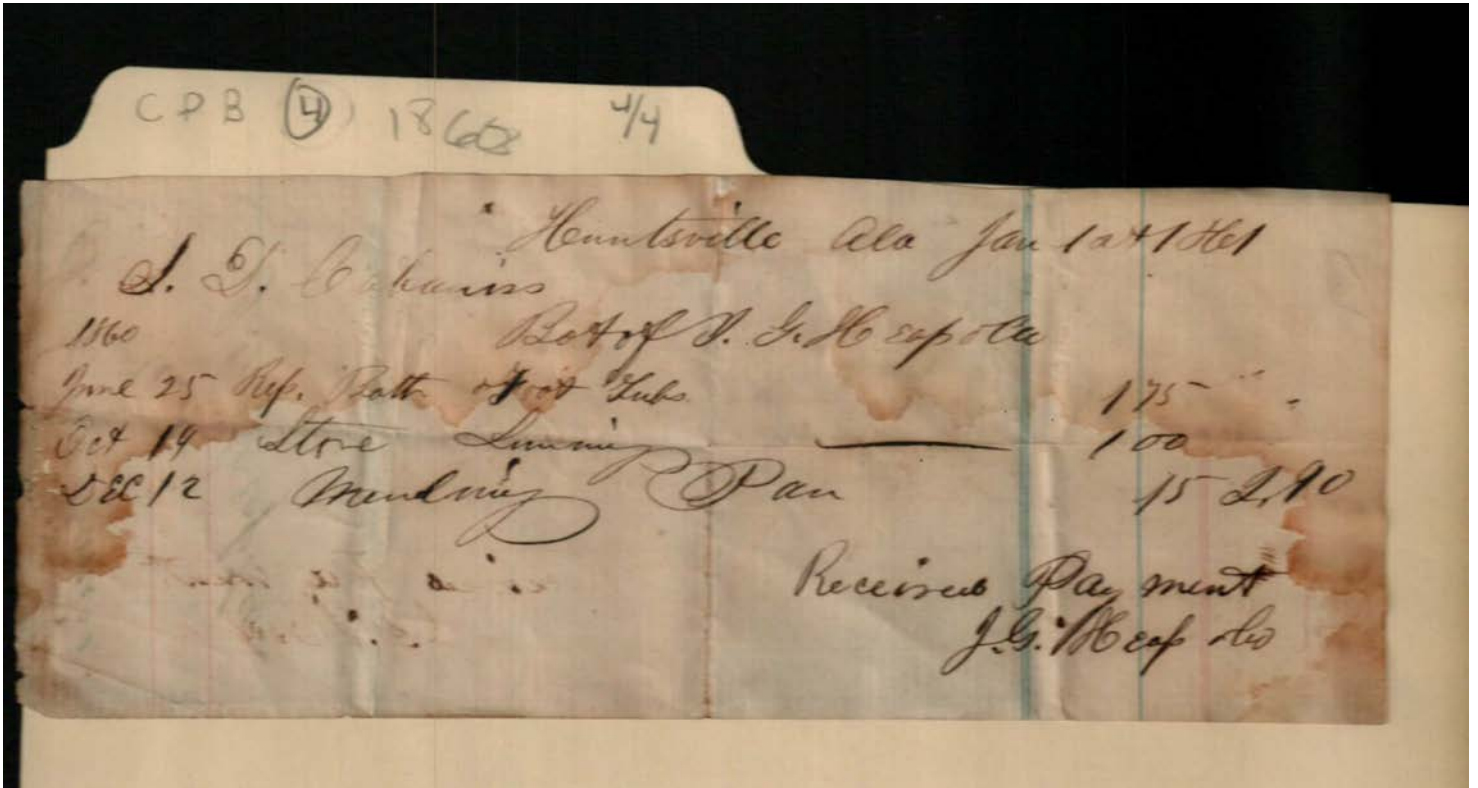 CPB (4) 1860 4/4
Huntsville Ala Jan 1st 1861
S. D. Cabaniss
1860
Bot of J. G. Heap & Co
June 25 Rep. Bath & Foot Tubs 175 "
Oct 19 Stove 100
DEC 12 Mending Pan 15 2,90
Received Payment
J. G. Heap & Co